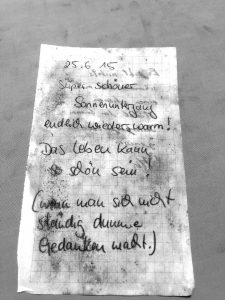 25.6.15
Super-schöner
Sonnenuntergang
endlich wieder warm!
Das Leben kann
so schön sein!
(wenn man sich nicht
ständig dumme
Gedanken macht.)